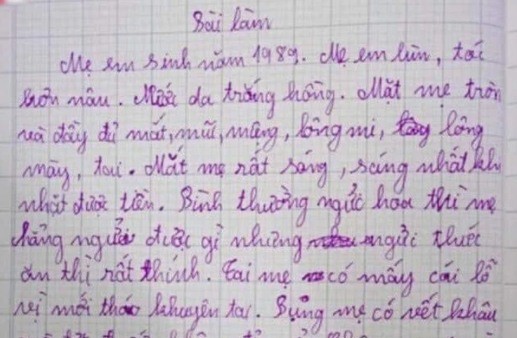 Bài làm
Mẹ em sinh năm 1989. Mẹ em lùn, tóc
hơn nâu. Mức da trắng hồng. Mặt mẹ tròn
và đầy đủ mắt, mũi, miệng, lông mi, lông
mày, tai. Mắt mẹ rất sáng, sáng nhất kh
nhặt được tiền. Bình thường ngửi hoa thì mẹ
chẳng ngửi được gì nhưng ngửi thức
ăn thì rất thính. Tai mẹ có mấy cái lỗ
vì mới tháo khuyên tai. Bụng mẹ có vết khâu